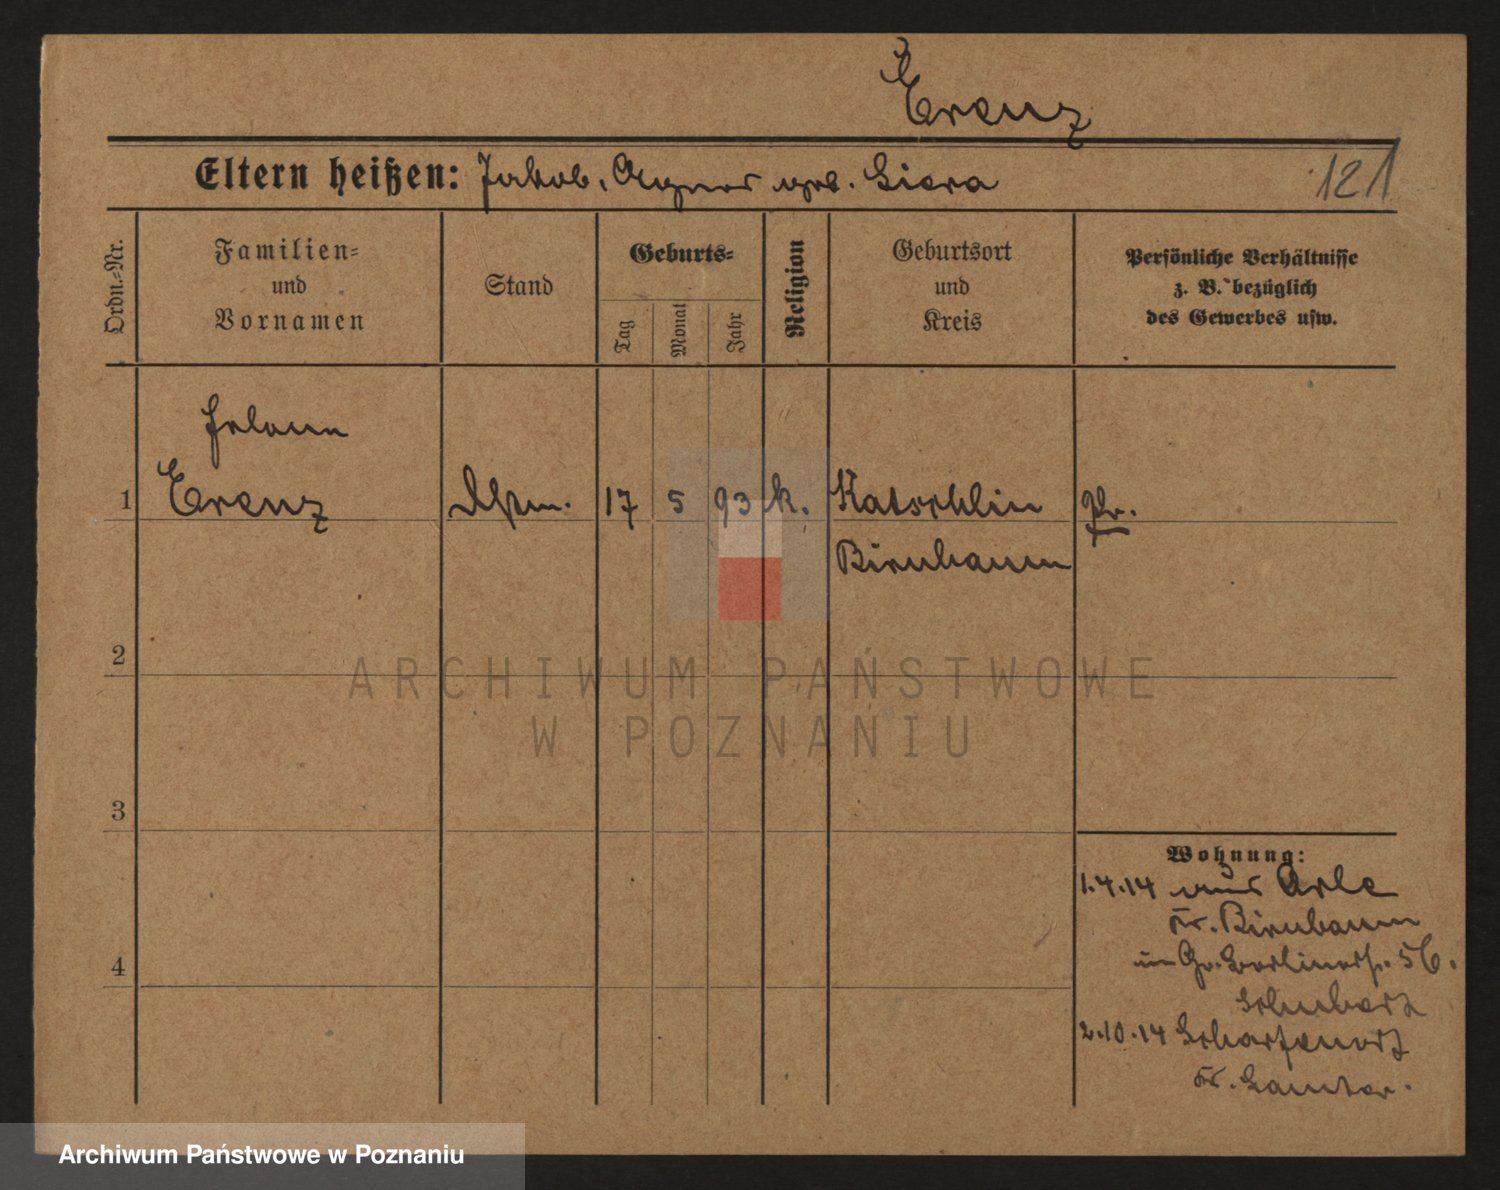 Erenz
Eltern heißen: Jakob, Agnes geb. Siera
121
Ordn.-Nr.
Familien-
und
Vornamen
Stand
Geburts-
Tag
Monat
Jahr
Religion
Geburtsort
und
Kreis
Persönliche Verhältnisse
z. B. bezüglich
des Gewerbes usw.
Johann
1 Erenz 17 5 93 k. Katschlin Pr.
Birnbaum
2
3
4
Wohnung:
1.4.14 aus
Kr. Birnbaum
Gr. Berlinerstr. 56.
Schubert
2.10.14 Scharfenort
Kr. Samter.
ARCHIWUM PAŃSTWOWE
W POZNANIU
Archiwum Państwowe w Poznaniu